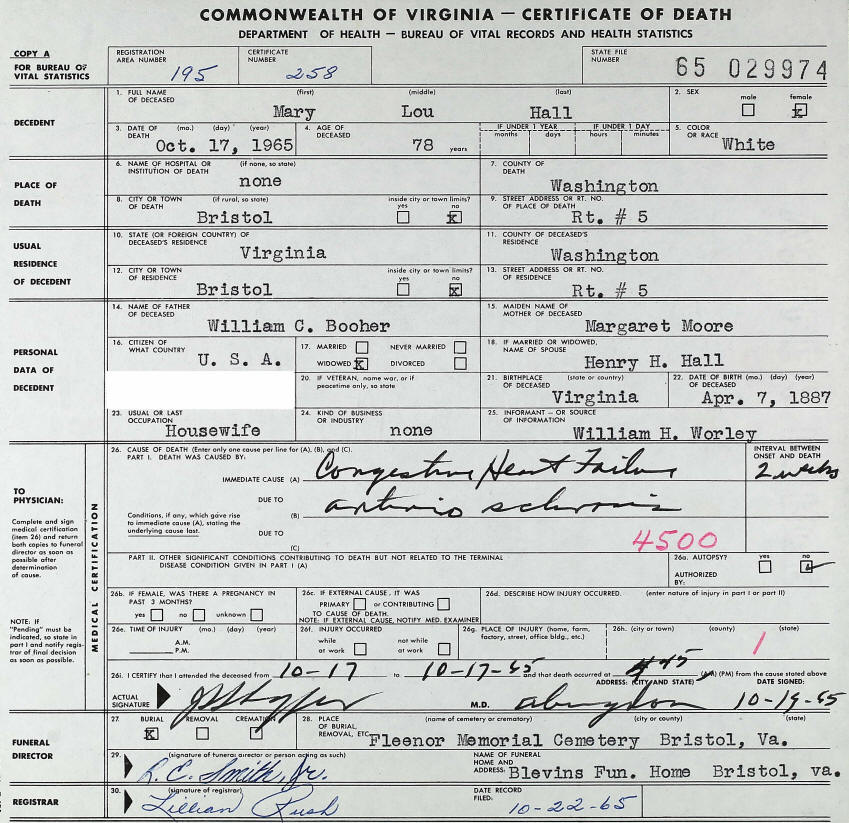 COMMONWEALTH OF VIRGINIA — CERTIFICATE OF DEATH
DEPARTMENT OF HEALTH — BUREAU OF VITAL RECORDS AND HEALTH STATISTICS
COPY A
FOR BUREAU OF VITAL STATISTICS
REGISTRATION AREA NUMBER 195
CERTIFICATE NUMBER 258
STATE FILE NUMBER 65 029974
DECEDENT
1. FULL NAME OF DECEASED (first) (middle) (last)
Mary Lou Hall
2. SEX male female x
3. DATE OF DEATH (mo.) (day) (year)
Oct. 17, 1965
4. AGE OF DECEASED 78 years
IF UNDER 1 YEAR months days
IF UNDER 1 DAY hours minutes
5. COLOR OR RACE White
PLACE OF DEATH
6. NAME OF HOSPITAL OR INSTITUTION OF DEATH (if none, so state)
none
7. COUNTY OF DEATH
Washington
8. CITY OR TOWN OF DEATH (if rural, so state)
Bristol
inside city or town limits? yes no x
9. STREET ADDRESS OR RT. NO. OF PLACE OF DEATH
Rt. # 5
USUAL RESIDENCE OF DECEDENT
10. STATE (OR FOREIGN COUNTRY) OF DECEASED'S RESIDENCE
Virginia
11. COUNTY OF DECEASED'S RESIDENCE
Washington
12. CITY OR TOWN OF RESIDENCE
Bristol
inside city or town limits? yes no x
13. STREET ADDRESS OR RT. NO. OF RESIDENCE
Rt. # 5
PERSONAL DATA OF DECEDENT
14. NAME OF FATHER OF DECEASED
William C. Booher
15. MAIDEN NAME OF MOTHER OF DECEASED
Margaret Moore
16. CITIZEN OF WHAT COUNTRY
U. S. A.
17. MARRIED NEVER MARRIED
WIDOWED x DIVORCED
18. IF MARRIED OR WIDOWED, NAME OF SPOUSE
Henry H. Hall
20. IF VETERAN, name war, or if peacetime only, so state
21. BIRTHPLACE OF DECEASED (state or country)
Virginia
22. DATE OF BIRTH (mo.) (day) (year) OF DECEASED
Apr. 7, 1887
23. USUAL OR LAST OCCUPATION
Housewife
24. KIND OF BUSINESS OR INDUSTRY
none
25. INFORMANT - OR SOURCE OF INFORMATION
William H. Worley
TO PHYSICIAN:
Complete and sign medical certification (item 26) and return both copies to funeral director as soon as possible after determination of cause.
NOTE: IF "Pending" must be indicated, so state in part I and notify registrar of final decision as soon as possible.
MEDICAL CERTIFICATION
26. CAUSE OF DEATH (Enter only one cause per line for (A), (B), and (C).
PART I. DEATH WAS CAUSED BY:
INTERVAL BETWEEN ONSET AND DEATH
IMMEDIATE CAUSE (A) Congestive Heart Failure 2 weeks
DUE TO
Conditions, if any, which gave rise to immediate cause (A), stating the underlying cause last.
(B) arterio sclerosis
DUE TO
(C)
4500
PART II. OTHER SIGNIFICANT CONDITIONS CONTRIBUTING TO DEATH BUT NOT RELATED TO THE TERMINAL DISEASE CONDITION GIVEN IN PART I (A)
26a. AUTOPSY? yes no
AUTHORIZED BY:
26b. IF FEMALE, WAS THERE A PREGNANCY IN PAST 3 MONTHS?
yes no unknown
26c. IF EXTERNAL CAUSE, IT WAS
PRIMARY or CONTRIBUTING
TO CAUSE OF DEATH.
NOTE: IF EXTERNAL CAUSE, NOTIFY MED. EXAMINER
26d. DESCRIBE HOW INJURY OCCURRED. (enter nature of injury in part I or part II)
26e. TIME OF INJURY (mo.) (day) (year)
A.M.
P.M.
26f. INJURY OCCURRED
while at work not while at work
26g. PLACE OF INJURY (home, farm, factory, street, office bldg., etc.)
26h. (city or town) (county) (state)
26i. I CERTIFY that I attended the deceased from 10-17 to 10-17-65 and that death occurred at (AM) (PM) from the cause stated above
ACTUAL SIGNATURE
M.D.
ADDRESS: (CITY AND STATE) Abingdon
DATE SIGNED: 10-19-65
FUNERAL DIRECTOR
27. BURIAL x REMOVAL CREMATION
28. PLACE OF BURIAL, REMOVAL, ETC. (name of cemetery or crematory) (city or county) (state)
Fleenor Memorial Cemetery Bristol, Va.
29. (signature of funeral director or person acting as such)
R. C. Smith, Jr.
NAME OF FUNERAL HOME AND ADDRESS: Blevins Fun. Home Bristol, va.
REGISTRAR
30. (signature of registrar)
Lillian Rush
DATE RECORD FILED: 10-22-65